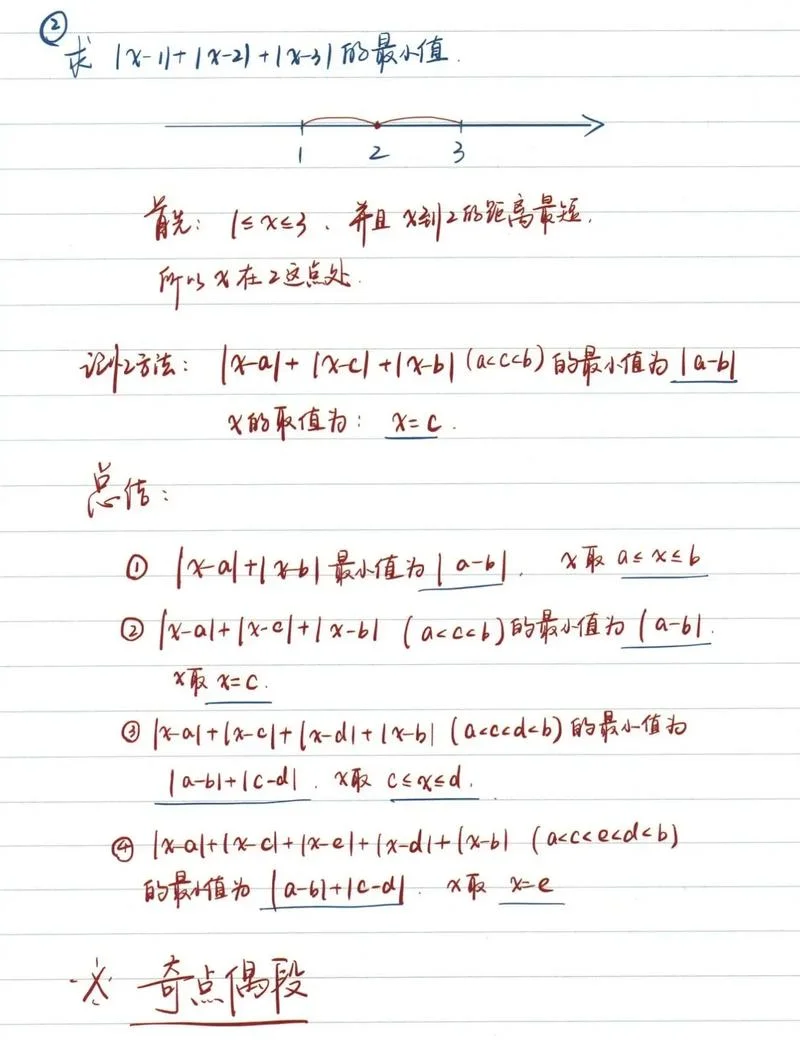 ②
求 |x-1|+|x-2|+|x-3| 的最小值.
1 2 3
首先: 1≤x≤3, 并且 x到2的距离最短.
所以 x 在2这点处.
记忆方法: |x-a|+|x-c|+|x-b| (a<c<b) 的最小值为 |a-b|
x的取值为: x=c.
总结:
① |x-a|+|x-b| 最小值为 |a-b|, x取 a≤x≤b
② |x-a|+|x-c|+|x-b| (a<c<b)的最小值为 |a-b|.
x取 x=c.
③ |x-a|+|x-c|+|x-d|+|x-b| (a<c<d<b)的最小值为
|a-b|+|c-d|. x取 c≤x≤d.
④ |x-a|+|x-c|+|x-e|+|x-d|+|x-b| (a<c<e<d<b)
的最小值为 |a-b|+|c-d|. x取 x=e
※ 奇点偶段